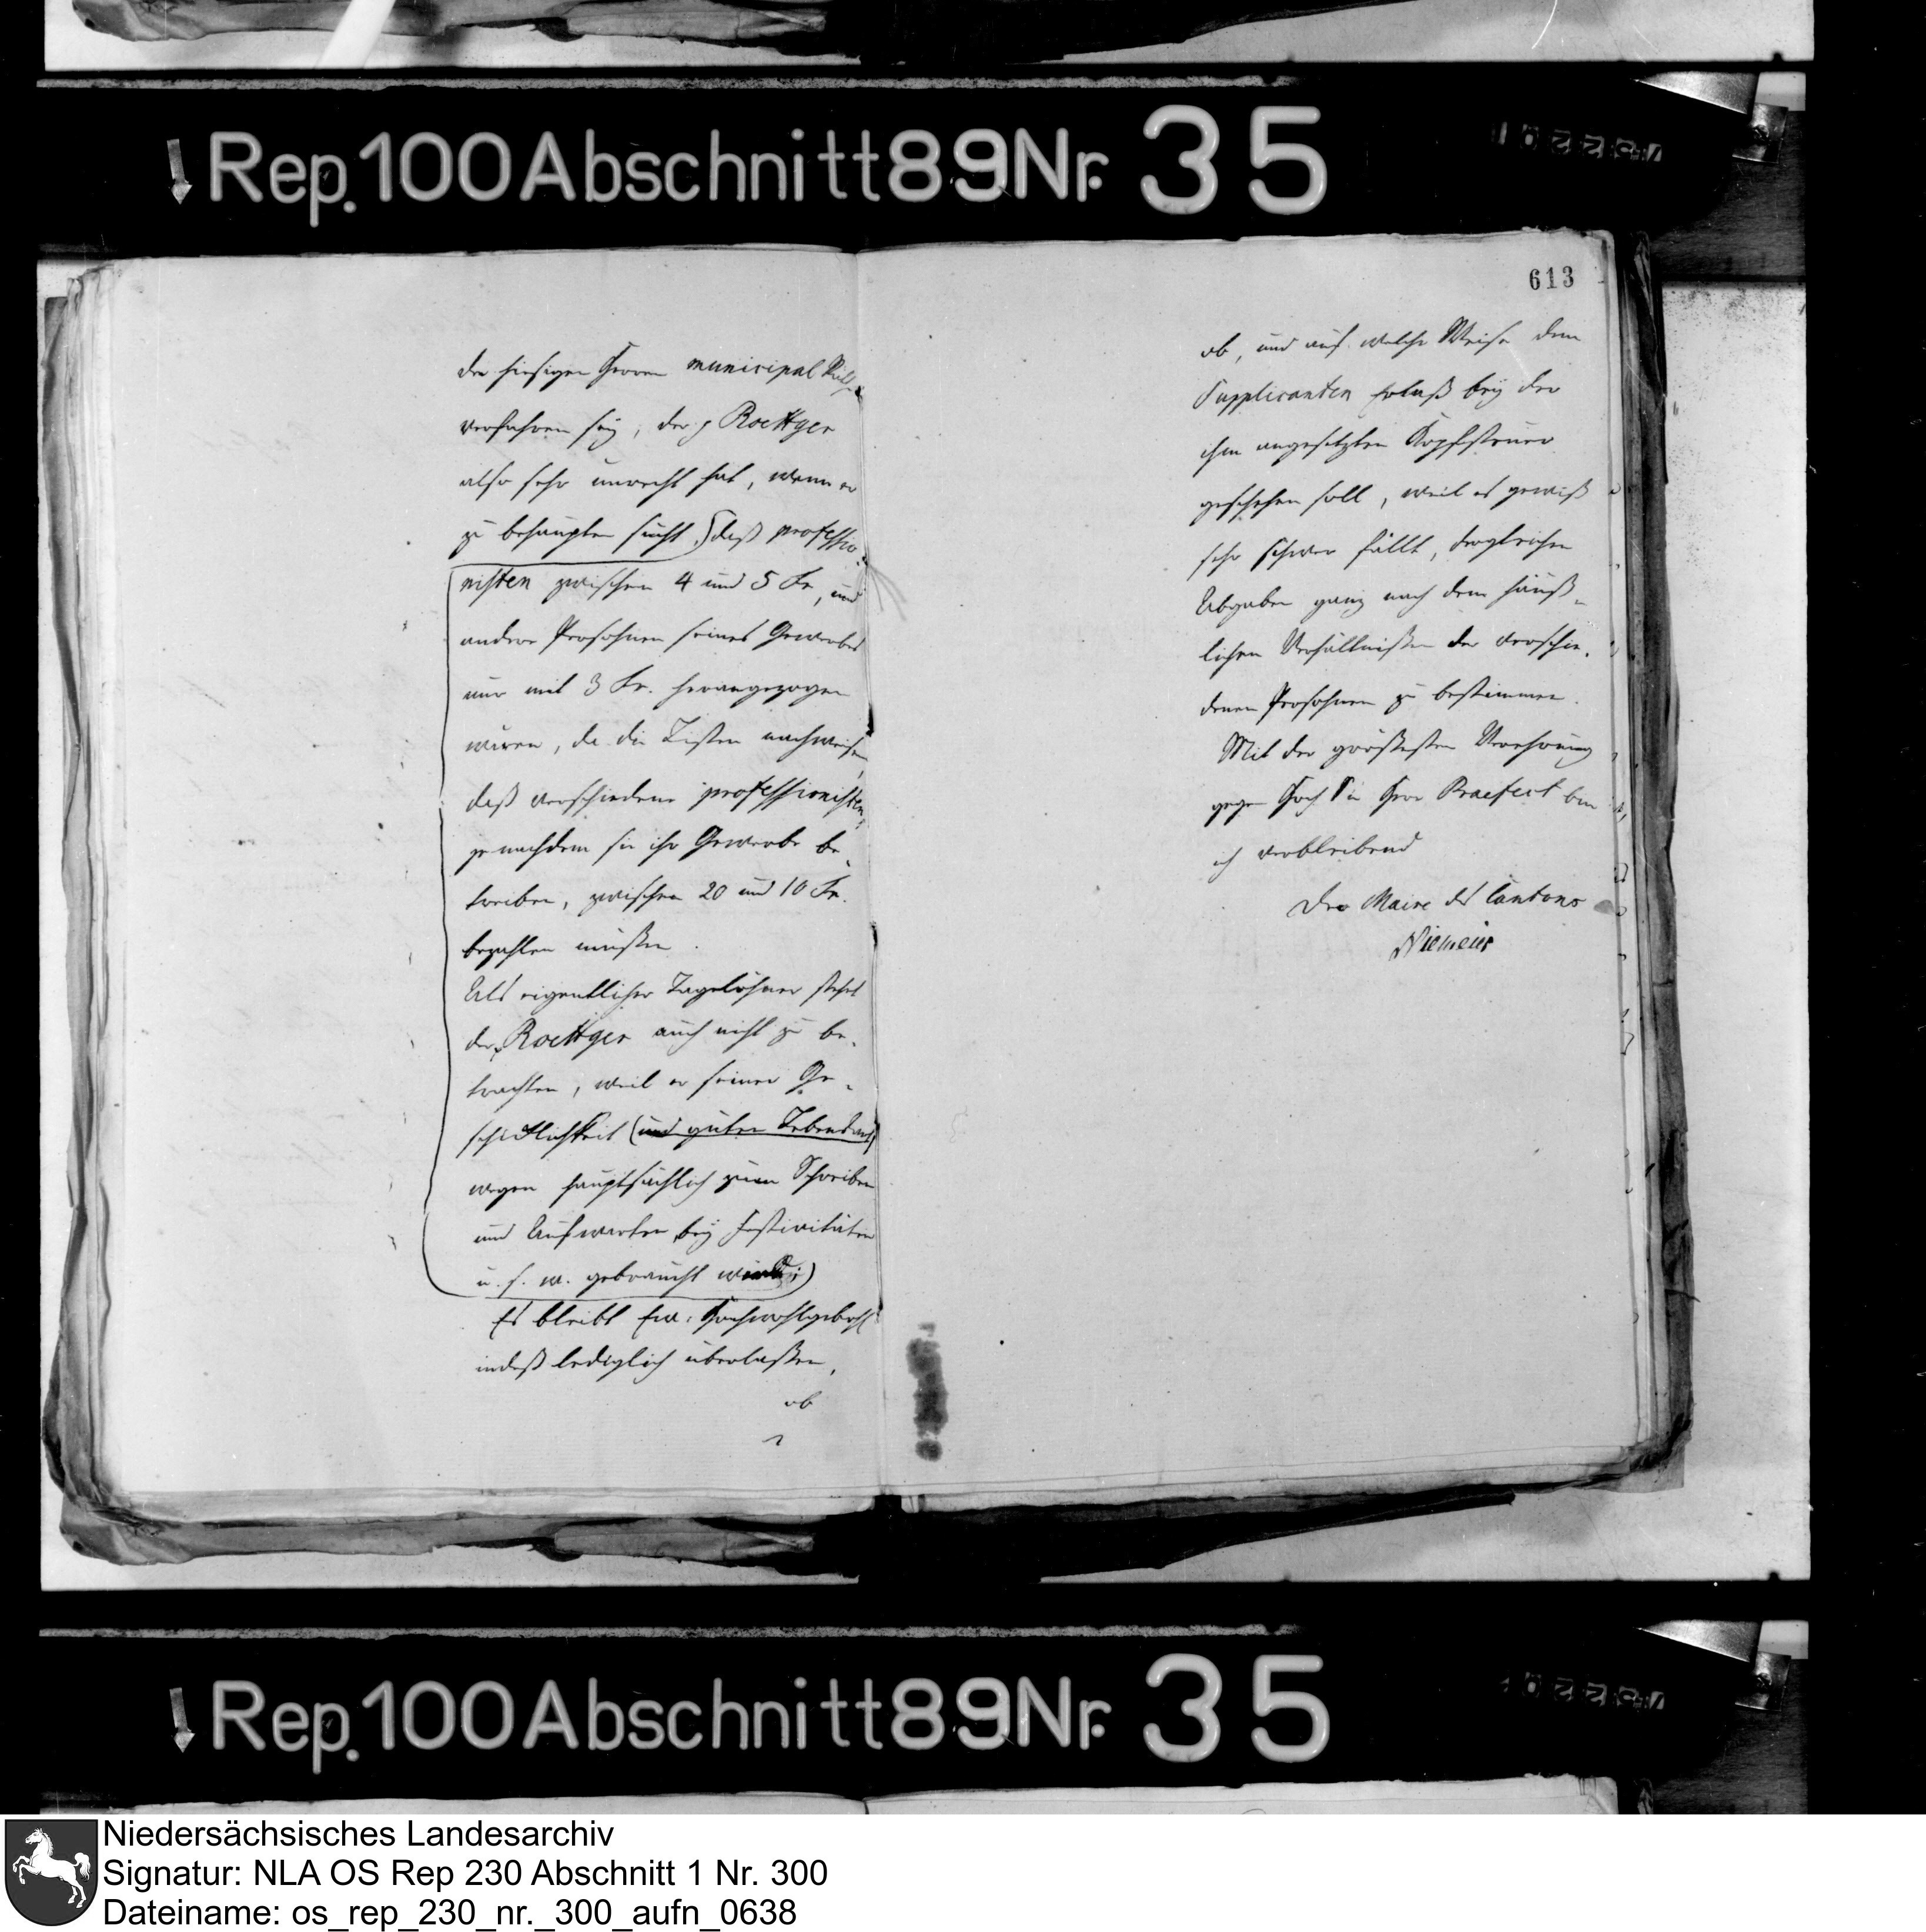 Rep. 100 Abschnitt 89 Nr. 35
der hiesigen Herren municipal Räthe
verfahren sey, der p Roettger
also sehr unrecht hat, wenn er
zu behaupten sucht, daß professio-
nisten zwischen 4 und 5 Fr, und
andere Persohnen seines Gewerbes
nur mit 3 Fr. herangezogen
wären, da die Listen nachweisen,
daß verschiedene professionisten,
je nachdem sie ihr Gewerbe be-
treiben, zwischen 20 und 10 Fr.
bezahlen müßen.
Als eigentlicher Tagelöhner steht
der p Roettger auch nicht zu be-
trachten, weil er seiner Ge-
schicklichkeit (und guten Lebensart)
wegen hauptsächlich zum Schreiben
und Aufwarten bey Festivitäten
u. s. w. gebraucht wird;)
Es bleibt Ew. Hochwohlgebohr
indeß lediglich überlaßen,
ob
613
ob, und auf welche Weise dem
Supplicanten Erlaß bey der
ihm angesetzten Kopfsteuer
geschehen soll, weil es gewiß
sehr schwer fällt, dergleichen
Abgaben ganz nach dem häuß-
lichen Verhältnißen der verschie-
denen Persohnen zu bestimmen.
Mit der größesten Verehrung
gegen Hoch Sie Herr Praefect bin
ich verbleibend
Der Maire des Cantons
Niemeier
Rep. 100 Abschnitt 89 Nr. 35
Niedersächsisches Landesarchiv
Signatur: NLA OS Rep 230 Abschnitt 1 Nr. 300
Dateiname: os_rep_230_nr._300_aufn_0638